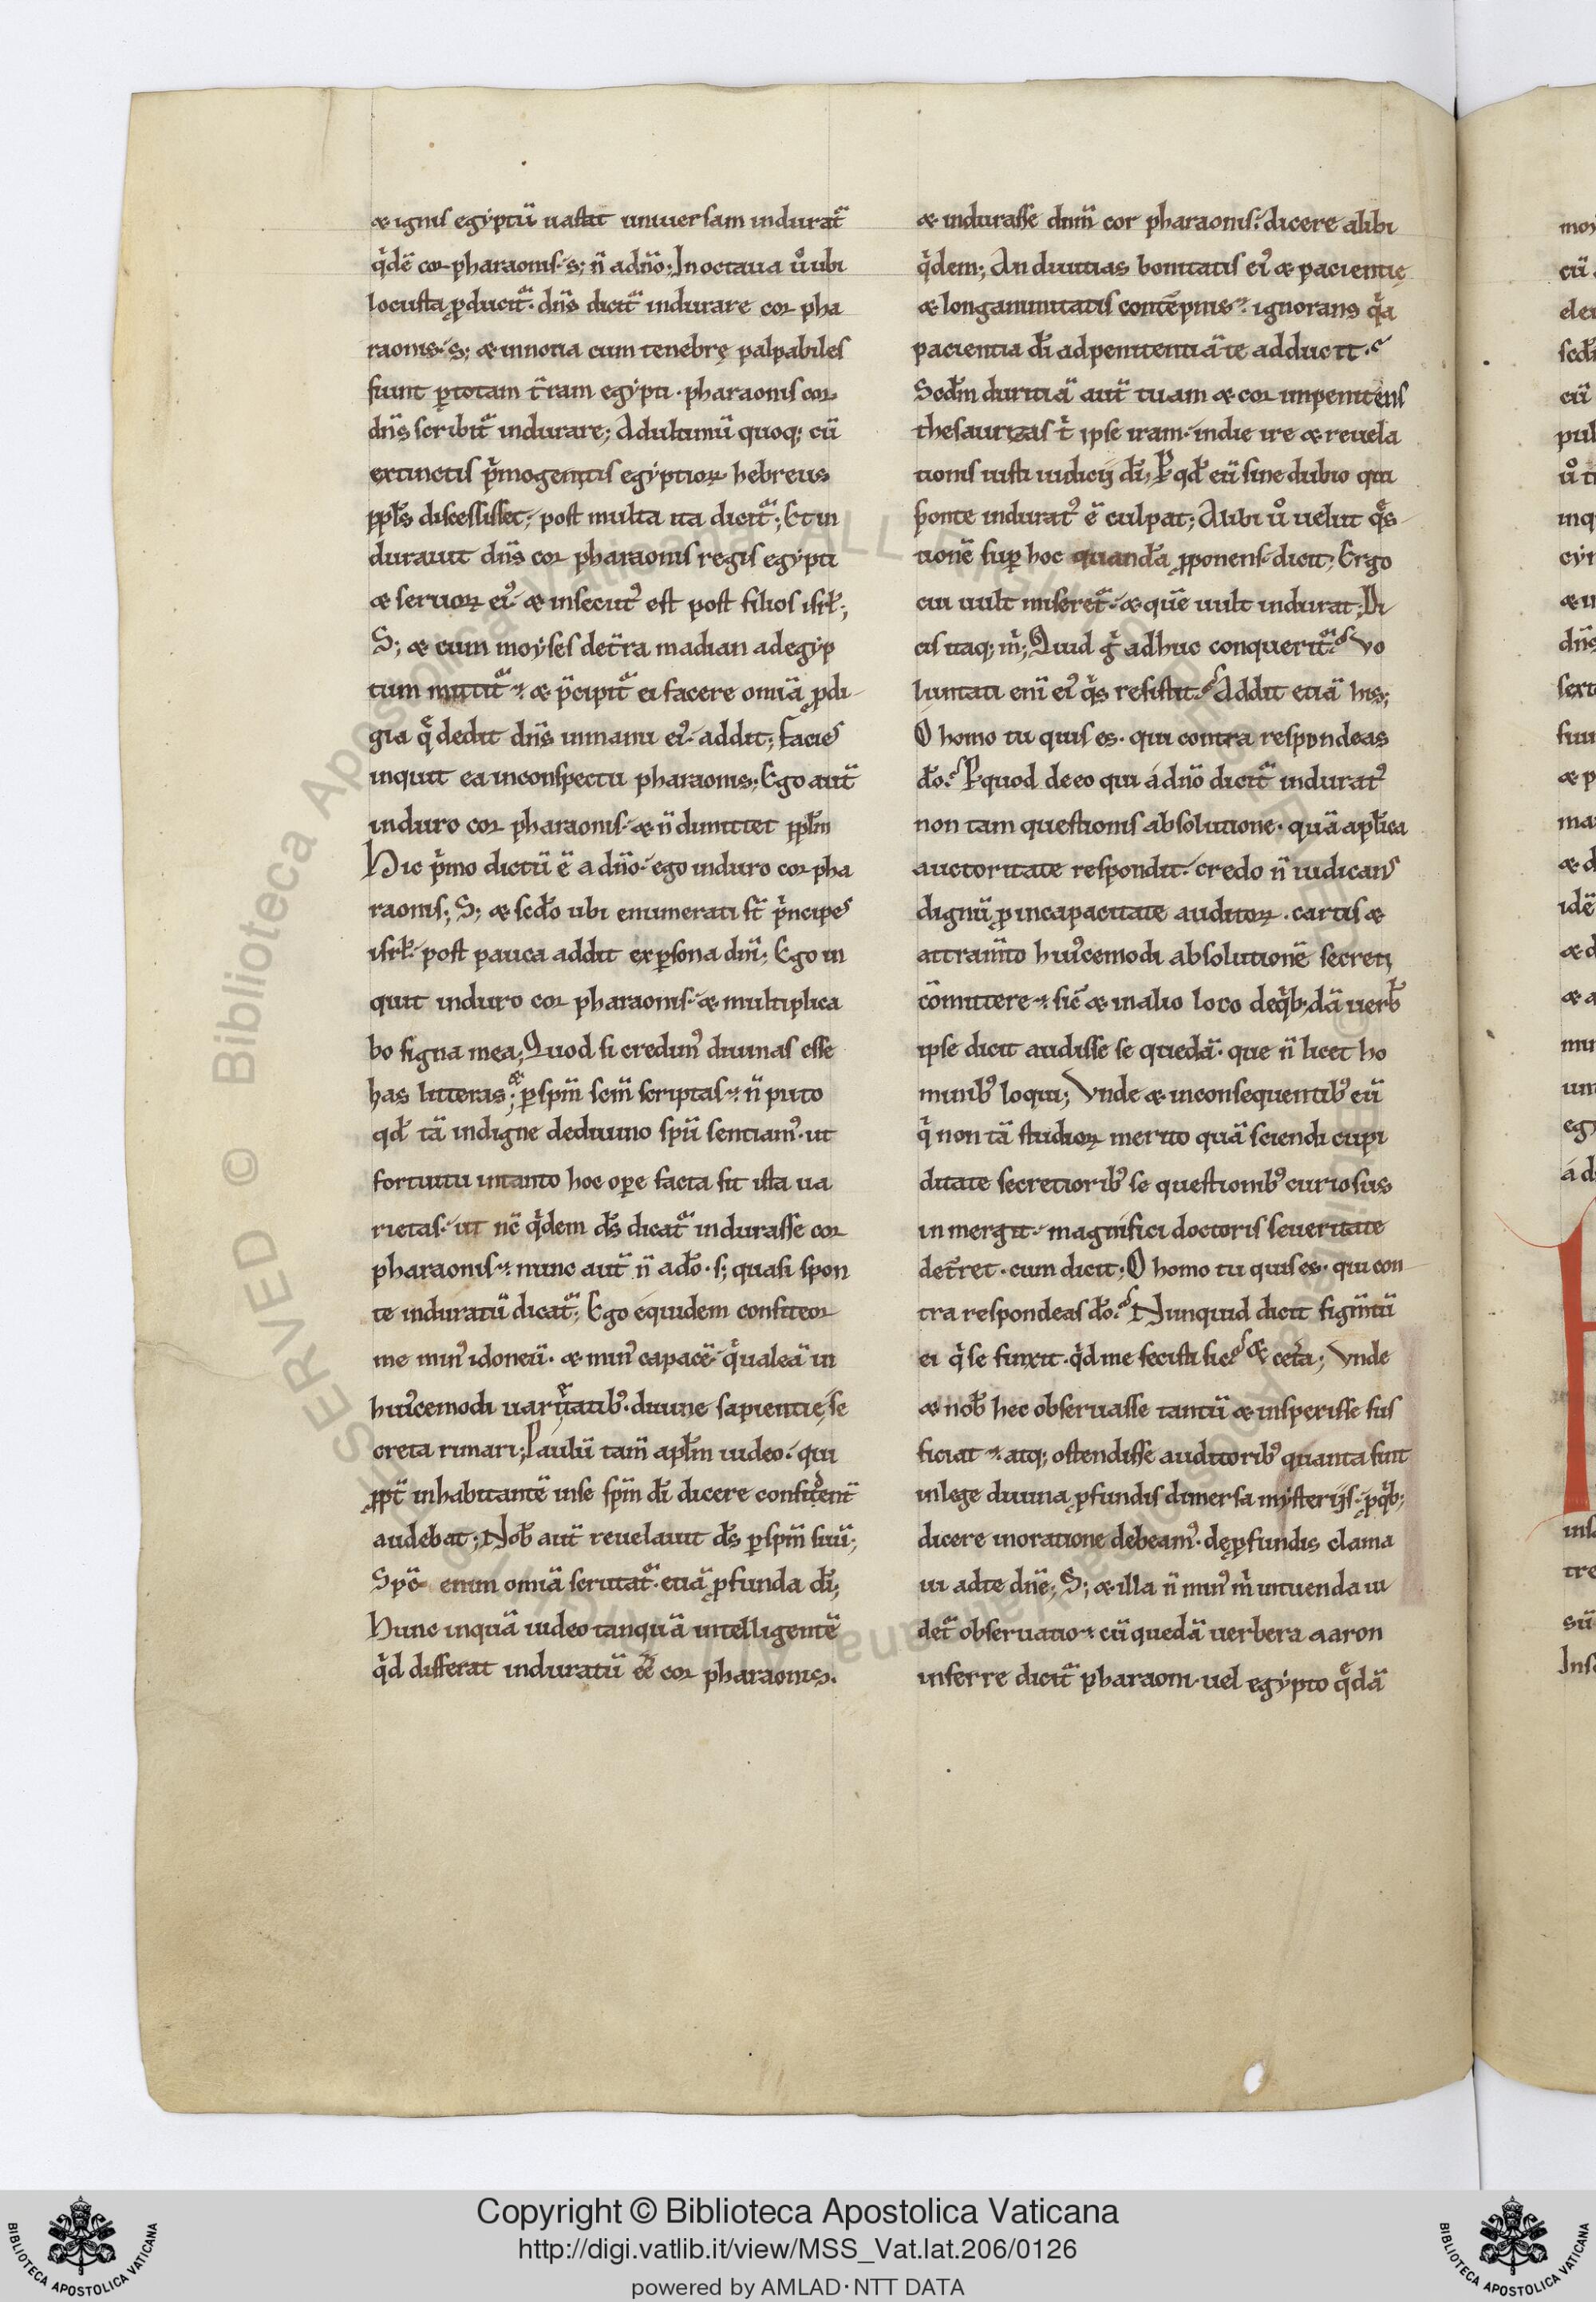 & ignis egyptū uastat uniuersam induratᷓ
qͥdē cor pharaonis· s; n̄ a dn̄o; In octaua u̾ ubi
locusta ꝓducitᷓ· dn̄s dicitᷓ indurare cor pha
raonis· s; & in nona cum tenebrę palpabiles
fiunt ꝑ totam t̄ram egypti· pharaonis cor
dn̄s scribitᷓ indurare; Ad ultimū quoq; cū
extinctis pͥmogenitis egyptioꝝ hebreus
ppl̄s discessisset· post multa ita dicitᷓ; Et in
durauit dn̄s cor pharaonis regis egypti
& seruoꝝ ei᾽· & insecut᾽ est post filios isrl̄;
S; & cum moyses de t̄ra madian ad egyp
tum mittitᷓ· & p̄cipitᷓ ei facere om̄ia ꝓdi
gia q̄ dedit dn̄s in manu ei᾽· addit; facies
inquit ea in conspectu pharaonis; Ego aut̄
induro cor pharaonis· & n̄ dimittet ppl̄m
Hic pͥmo dictū ē a dn̄o· ego induro cor pha
raonis; S; & scd̄o ubi enumerati st̄ pͥncipes
isrl̄· post pauca addit ex ꝑsona dn̄i; Ego in
quit induro cor pharaonis· & multiplica
bo signa mea; Quod si credim᾽ diuinas esse
has litteras; & ꝑ spm̄ scm̄ scriptas· n̄ puto
qd̄ tā indigne de diuino spū sentiam᾽· ut
fortuitu in tanto hoc oꝑe facta sit ista ua
rietas· ut nc̄ qͥdem ds̄ dicatᷓ indurasse cor
pharaonis· nunc aut̄ n̄ a do̅· s; quasi spon
te induratū dicatᷓ; Ego equidem confiteor
me min᾽ idoneū· & min᾽ capacē· qͥ ualeā in
hui᾽cemodi uarietatib᾽· diuine sapientię se
creta rimari; Paulū tam̄ apl̄m uideo· qui
ꝓpt̄ inhabitantē in se spm̄ di̅ dicere confident̄
audebat; Nob̄ aut̄ reuelauit ds̄ ꝑ spm̄ suū;
Spc̄ enim om̄ia scrutatᷓ· etiā ꝓfunda di̅;
Hunc inquā uideo tanquā intelligentē
qͥd differat induratū eē cor pharaonis.
& indurasse dnm̄ cor pharaonis· dicere alibi
qͥdem; An diuitias bonitatis ei᾽ & pacientię
& longanimitatis contēpnis· ignorans qͥa
pacientia di̅ ad penitentiā te adducit·
Scdm̄ duritiā aut̄ tuam & cor impenitens
thesaurizas tͥ ipse iram· in die ire & reuela
tionis iusti iudicii di̅; P qd̄ eū sine dubio qui
sponte indurat᾽ ē culpat; Alibi u̾ uelut qͤs
tionē suꝑ hoc quandā ꝓponens· dicit; Ergo
cui uult miseretᷓ· & quē uult indurat; Di
cis itaq; mͥ; Quid gͥ adhuc conqueritᷓ Vo
luntati eni̅ ei᾽ qͥs resistit· Addit etiā his;
O homo tu quis es· qui contra respondeas
do̅· P quod de eo qui á dn̄o dicitᷓ indurat᾽
non tam questionis absolutione· quā apl̄ica
auctoritate respondit· credo n̄ iudicans
dignū ꝓ incapacitate auditoꝝ· cartis &
attram̄to hui᾽cemodi absolutionē secreti
cōmittere· sic̄ & in alio loco de qͥb;dā uerb̄
ipse dicit audisse se quedā· que n̄ licet ho
minib᾽ loqui; Vnde & in consequentib᾽ eū
qͥ non tā studioꝝ merito quā sciendi cupi
ditate secretiorib᾽ se questionib᾽ curiosus
in mergit· magnifici doctoris seueritate
det̄ret· cum dicit; O homo tu quis es· qui con
tra respondeas do̅· Nunquid dicit figm̄tū
ei qͥ se finxit· qͥd me fecisti sic & cet̄a; Vnde
& nob̄ hec obseruasse tantū & inspexisse suf
ficiat· atq; ostendisse auditorib᾽ quanta sint
in lege diuina ꝓfundis dimersa mysteriis· ꝓ qͥb;
dicere in oratione debeam᾽· de ꝓfundis clama
ui ad te dn̄e; S; & illa n̄ min᾽ mͥ intuenda ui
detᷓ obseruatio· cū quedā uerbera aaron
inferre dicitᷓ pharaoni· uel egypto qͤdā
Copyright © Biblioteca Apostolica Vaticana
http://digi.vatlib.it/view/MSS_Vat.lat.206/0126
powered by AMLAD·NTT DATA